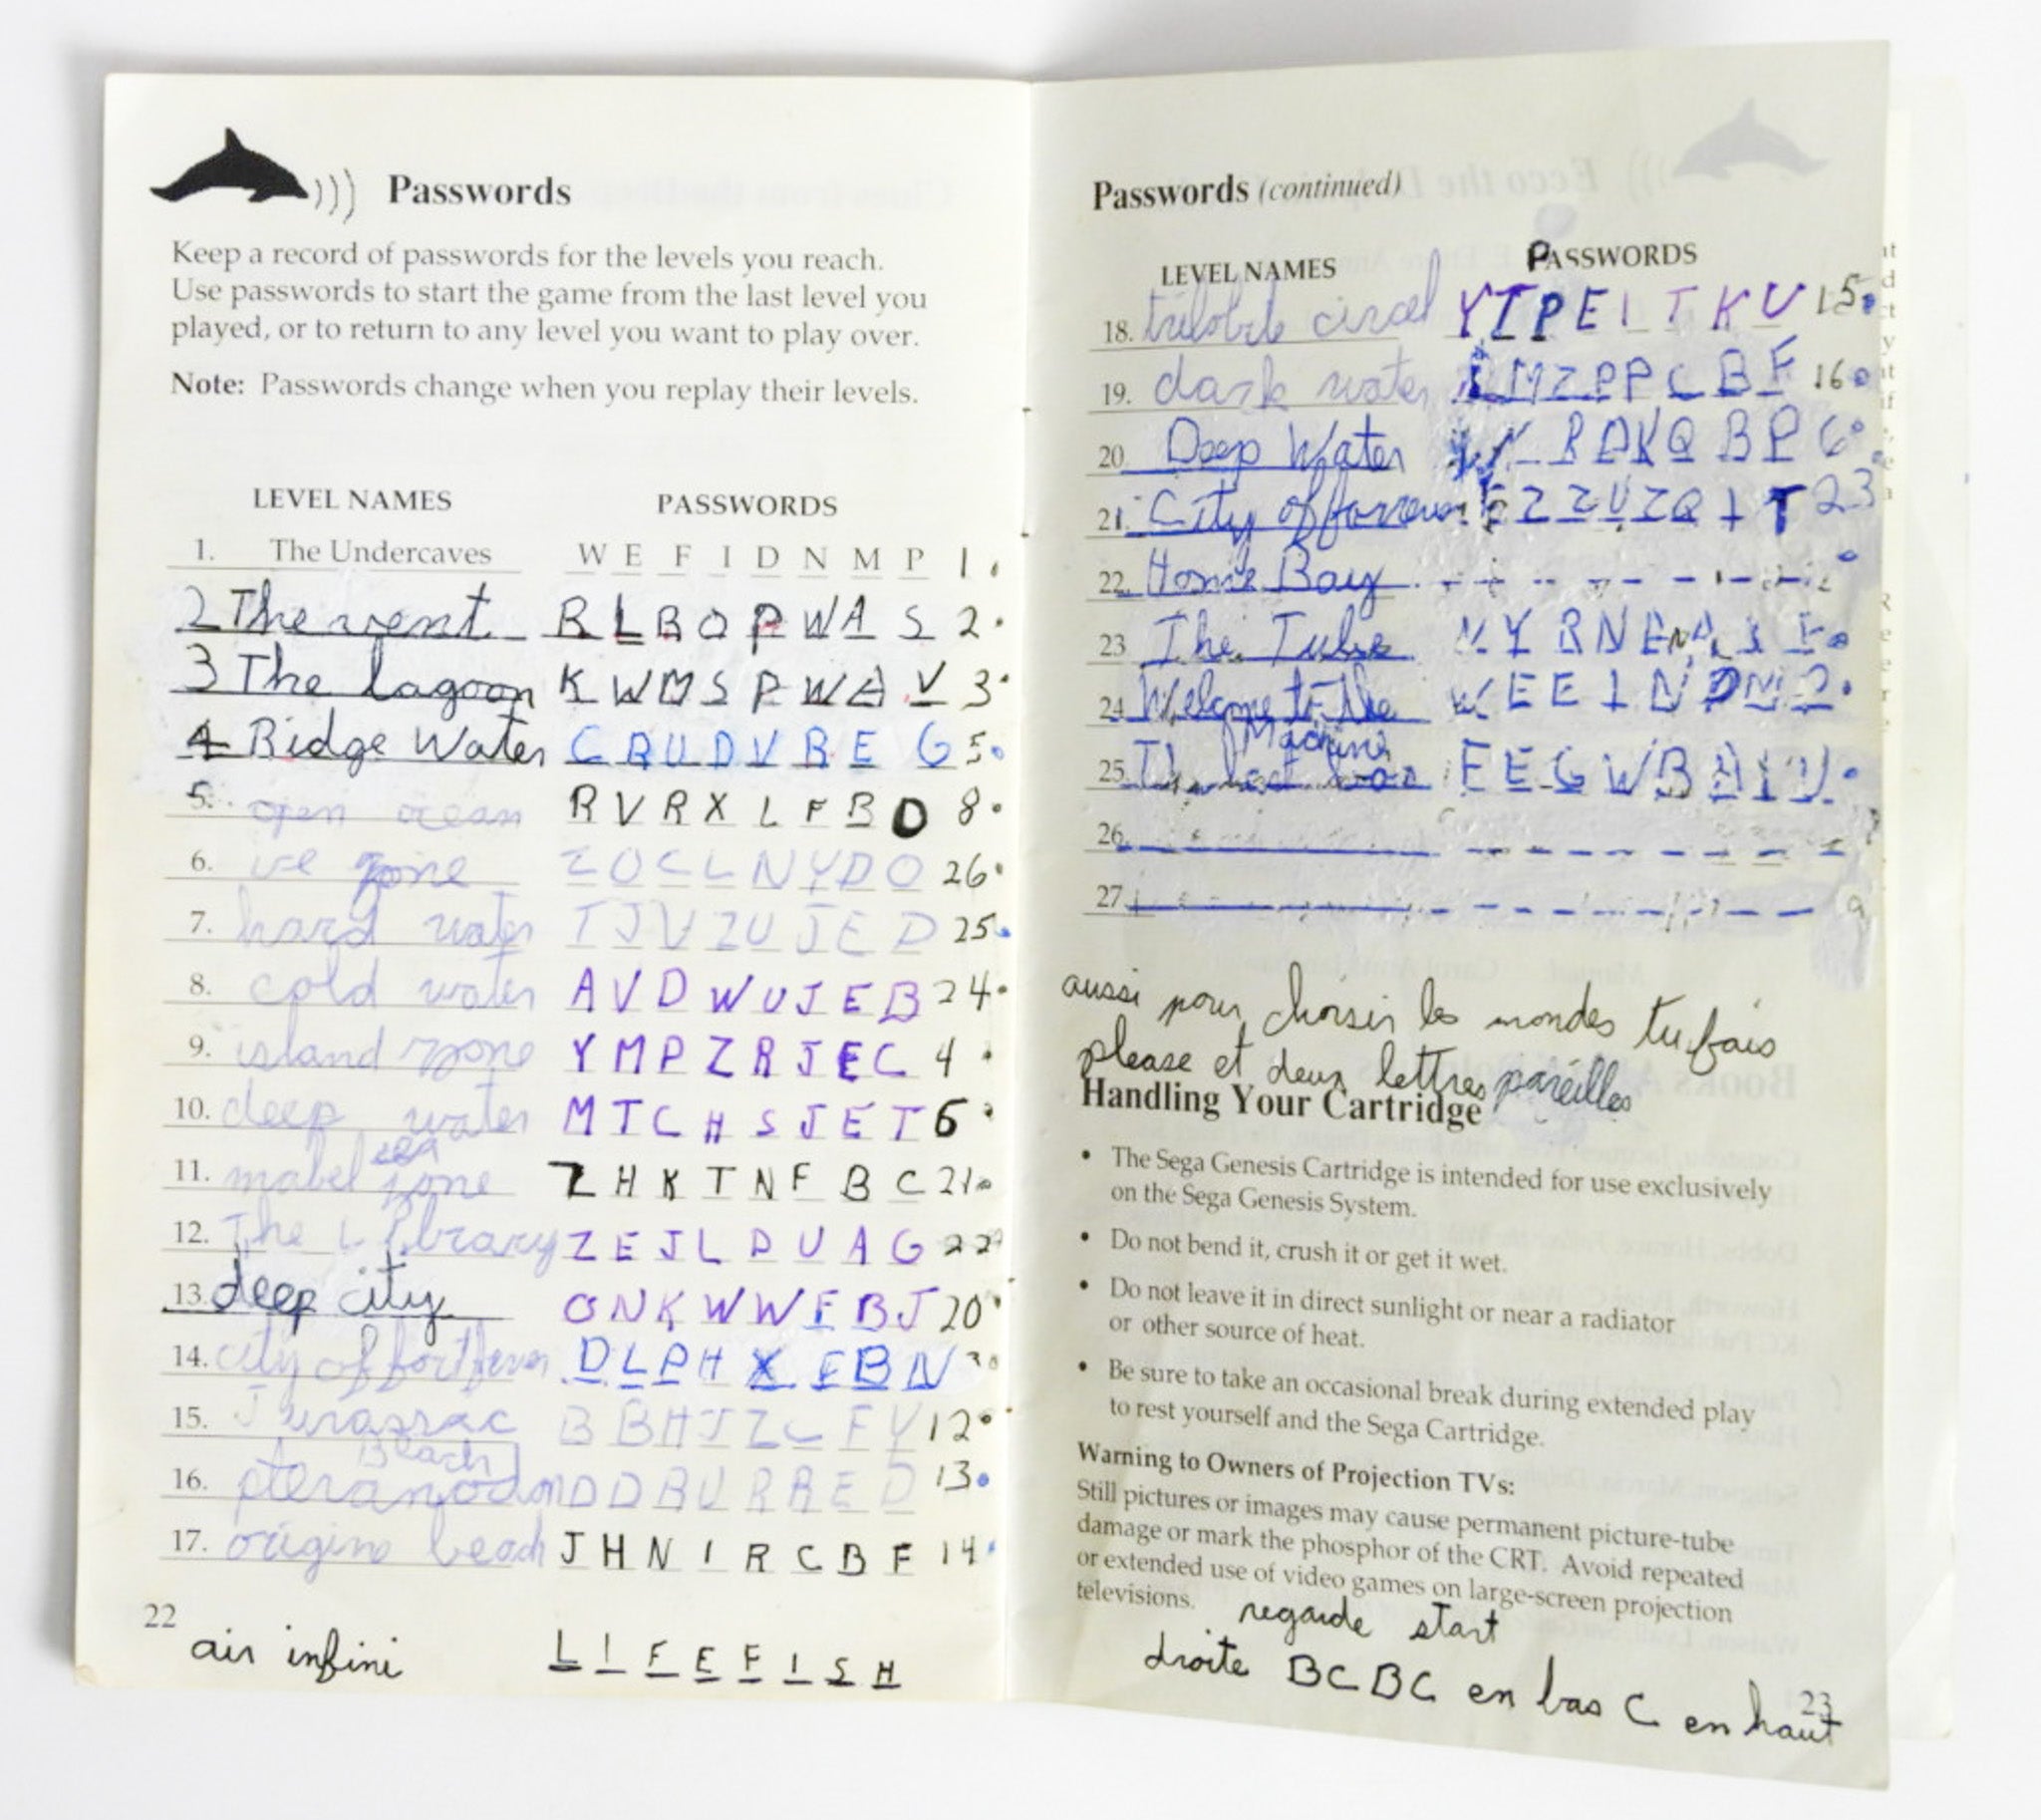 Passwords
Keep a record of passwords for the levels you reach.
Use passwords to start the game from the last level you
played, or to return to any level you want to play over.
Note: Passwords change when you replay their levels.
LEVEL NAMES PASSWORDS
1. The Undercaves W E F I D N M P 1.
2 The vent R L B O P W A S 2.
3 The lagoon K W M S P W A V 3.
4 Ridge Water C B U D V B E G 5.
5. open ocean R V R X L F B D 8.
6. ice zone Z O C L N Y D O 26.
7. hard water T J V Z U J E D 25.
8. cold water A V D W U J E B 24.
9. island zone Y M P Z R J E C 4.
10. deep water M T C H S J E T 6.
sea
11. mabel zone Z H K T N F B C 21.
12. The Library Z E J L D U A G 22.
13. deep city O N K W W F B J 20.
14. city of D L P H X F B N
15. Jurassac B B H J Z C F V 12.
Beach
16. pteranodon D D B U R R E D 13.
17. origine beach J H N I R C B F 14.
22
air infini L I F E F I S H
Passwords (continued)
LEVEL NAMES PASSWORDS
18. Y T P E I T K U 15.
19. dark water L M Z P P C B F 16.
20 Deep Water 6
21. City of forever Z Z U Z Q I T 23
22. Home Bay
23 The Tube
24 Welcome to the
Machine
25. E E G W B
26.
27
aussi pour choisir les mondes tu fais
please et deux lettres pareilles
Handling Your Cartridge
• The Sega Genesis Cartridge is intended for use exclusively
on the Sega Genesis System.
• Do not bend it, crush it or get it wet.
• Do not leave it in direct sunlight or near a radiator
or other source of heat.
• Be sure to take an occasional break during extended play
to rest yourself and the Sega Cartridge.
Warning to Owners of Projection TVs:
Still pictures or images may cause permanent picture-tube
damage or mark the phosphor of the CRT. Avoid repeated
or extended use of video games on large-screen projection
televisions.
regarde start
droite BCBC en bas C en haut
23